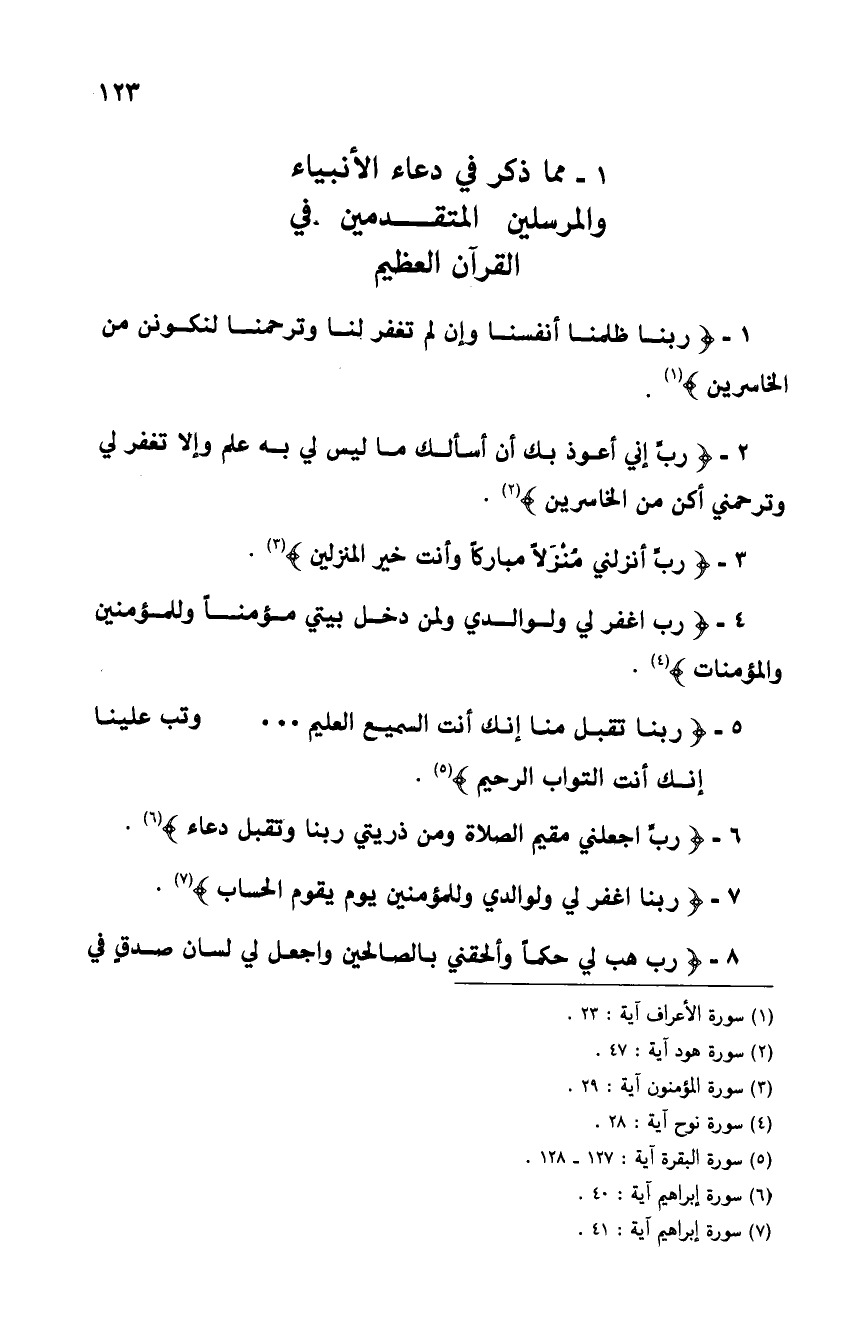 ١٢٣
١ ـ مما ذكر في دعاء الأنبياء
والمرسلين المتقـــدمين .في
القرآن العظيم
١ ـ ﴿ ربنـا ظلمنـا أنفسنـا وإن لم تغفر لنـا وترحمنـا لنكـونن من
الخاسرين ﴾(١) .
٢ ـ ﴿ ربِّ إني أعـوذ بـك أن أسألـك مـا ليس لي بـه علم وإلا تغفر لي
وترحمني أكن من الخاسرين ﴾(٢) .
٣ ـ ﴿ ربِّ أنزلني مُنْزَلاً مباركاً وأنت خير المنزلين ﴾(٣) .
٤ ـ ﴿ رب اغفر لي ولـوالـدي ولمن دخـل بيتي مـؤمنــاً وللمـؤمنين
والمؤمنات ﴾(٤) .
٥ ـ ﴿ ربنـا تقبـل منـا إنـك أنت السميـع العليم ... وتب علينـا
إنـك أنت التواب الرحيم ﴾(٥) .
٦ ـ ﴿ ربِّ اجعلني مقيم الصلاة ومن ذريتي ربنا وتقبل دعاء ﴾(٦) .
٧ ـ ﴿ ربنا اغفر لي ولوالدي وللمؤمنين يوم يقوم الحساب ﴾(٧) .
٨ ـ ﴿ رب هب لي حكماً وألحقني بـالصـالحين واجعـل لي لسـان صـدقٍ في
(١) سورة الأعراف آية : ٢٣ .
(٢) سورة هود آية : ٤٧ .
(٣) سورة المؤمنون آية : ٢٩ .
(٤) سورة نوح آية : ٢٨ .
(٥) سورة البقرة آية : ١٢٧ ـ ١٢٨ .
(٦) سورة إبراهيم آية : ٤٠ .
(٧) سورة إبراهيم آية : ٤١ .